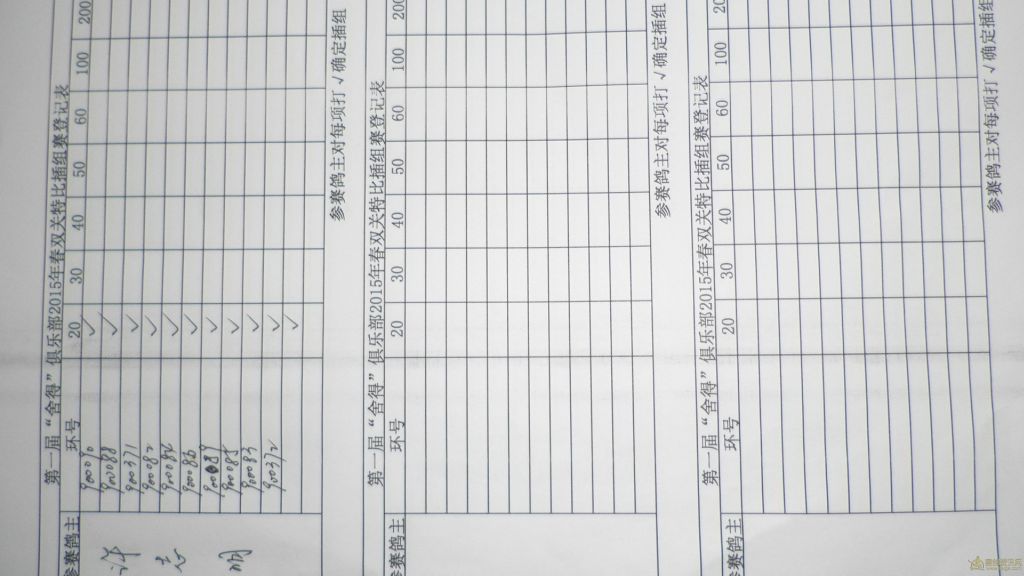 第一届“舍得”俱乐部2015年春双关特比插组赛登记表
参赛鸽主 环号 20 30 40 50 60 100 200
许志明
900090 √
900088 √
900371 √
900082 √
√
900086 √
900089 √
900085 √
900083 √
900372 √
√
参赛鸽主对每项打√确定插组
第一届“舍得”俱乐部2015年春双关特比插组赛登记表
参赛鸽主 环号 20 30 40 50 60 100 200
参赛鸽主对每项打√确定插组
第一届“舍得”俱乐部2015年春双关特比插组赛登记表
参赛鸽主 环号 20 30 40 50 60 100 20
参赛鸽主对每项打√确定插组